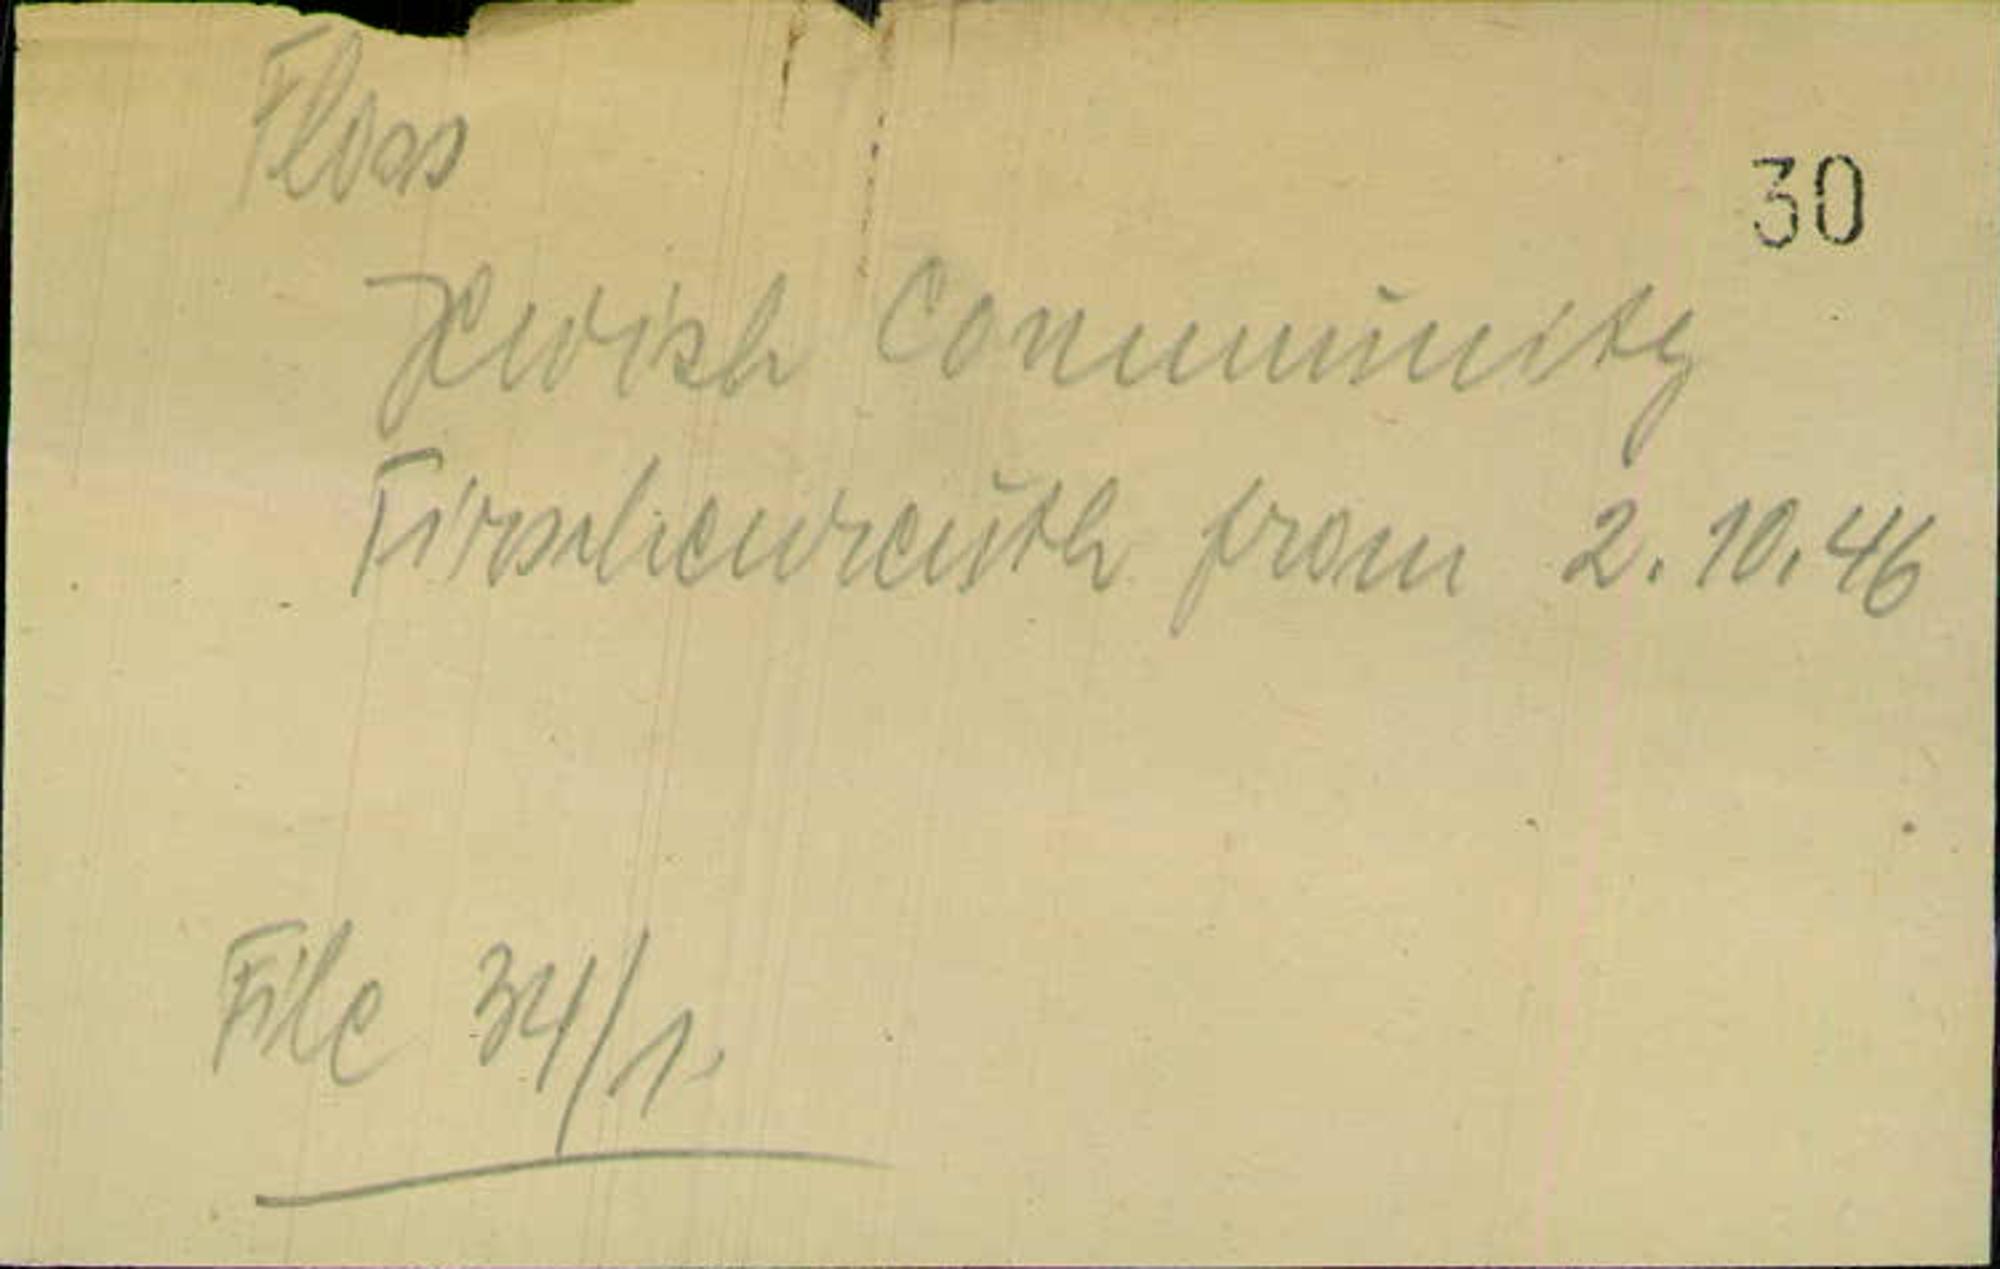 Floss
30
Jewish Community
Tirschenreuth from 2.10.46
File 34/1.